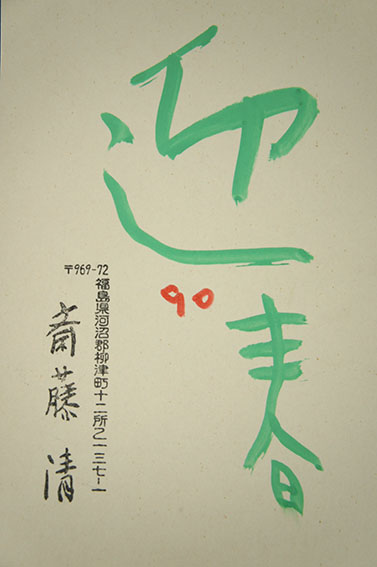 迎春
90
〒969-72
福島県河沼郡柳津町十二所乙一三七-一
斎藤清